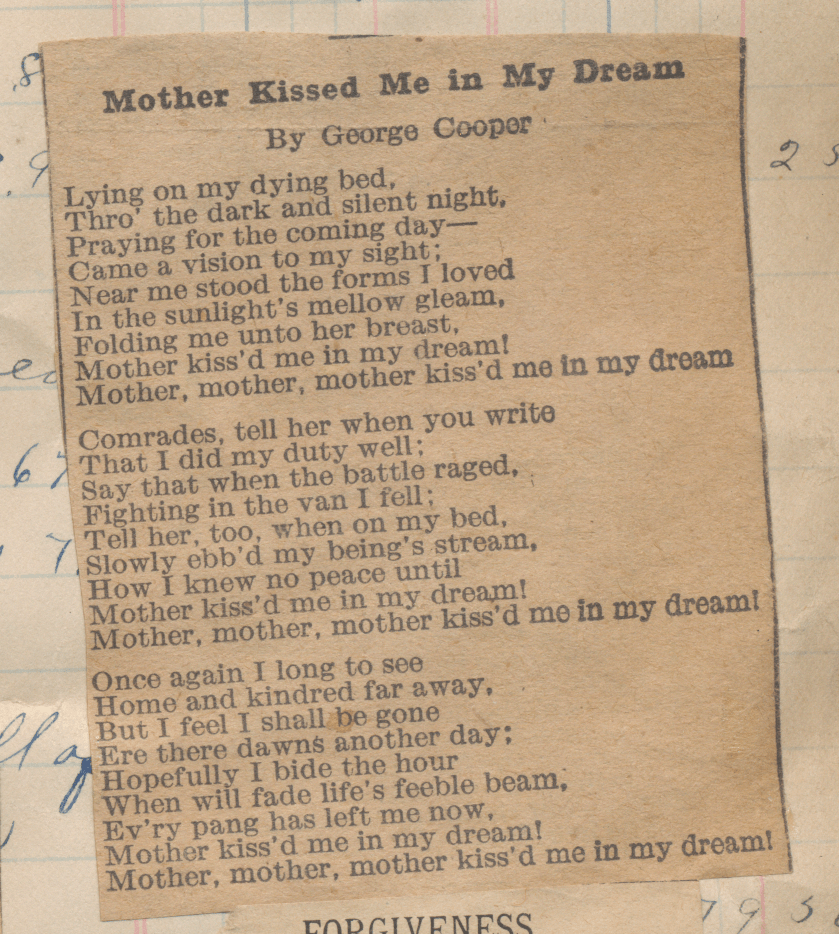 Mother Kissed Me in My Dream
By George Cooper
Lying on my dying bed,
Thro' the dark and silent night,
Praying for the coming day—
Came a vision to my sight;
Near me stood the forms I loved
In the sunlight's mellow gleam,
Folding me unto her breast,
Mother kiss'd me in my dream!
Mother, mother, mother kiss'd me in my dream
Comrades, tell her when you write
That I did my duty well;
Say that when the battle raged,
Fighting in the van I fell;
Tell her, too, when on my bed,
Slowly ebb'd my being's stream,
How I knew no peace until
Mother kiss'd me in my dream!
Mother, mother, mother kiss'd me in my dream!
Once again I long to see
Home and kindred far away,
But I feel I shall be gone
Ere there dawns another day;
Hopefully I bide the hour
When will fade life's feeble beam,
Ev'ry pang has left me now,
Mother kiss'd me in my dream!
Mother, mother, mother kiss'd me in my dream!
FORGIVENESS